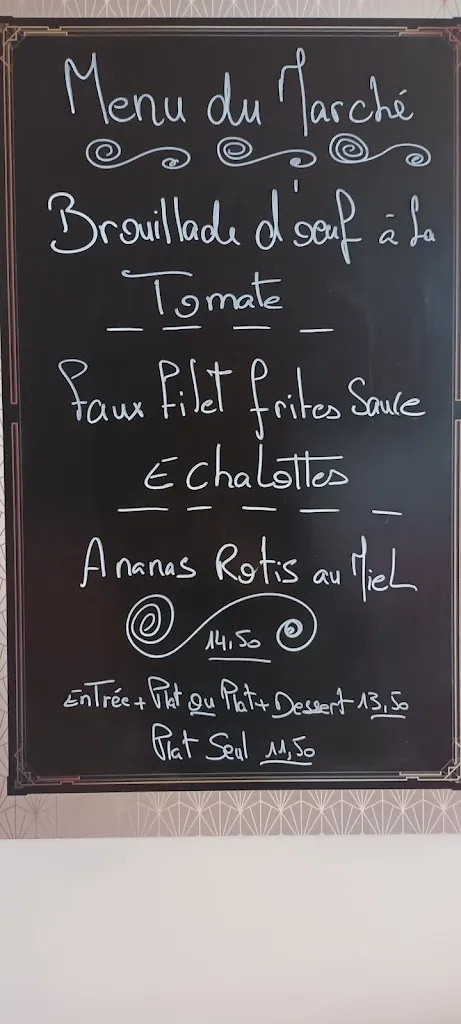 Menu du Marché
Brouillade d'oeuf à la
Tomate
Faux Filet frites Sauce
Echalottes
Ananas Rotis au Miel
14,50
Entrée + Plat ou Plat + Dessert 13,50
Plat Seul 11,50